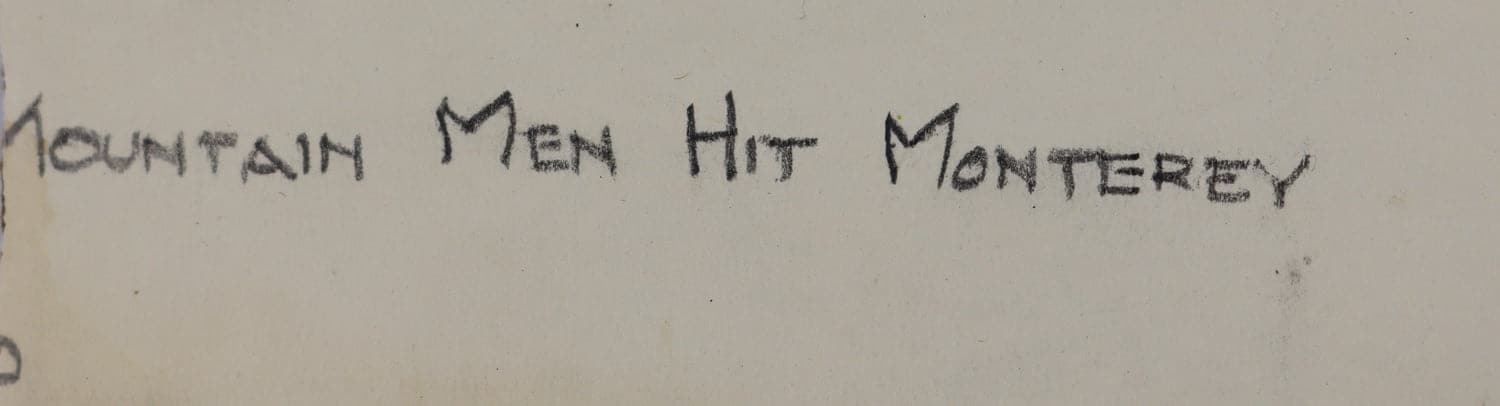 Mountain Men Hit Monterey